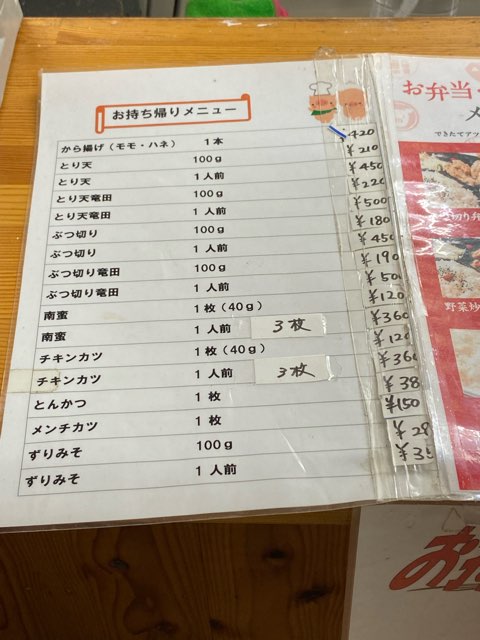 お持ち帰りメニュー
から揚げ（モモ・ハネ） 1本 420
とり天 100g ¥210
とり天 1人前 ¥450
とり天竜田 100g ¥220
とり天竜田 1人前 ¥500
ぶつ切り 100g ¥180
ぶつ切り 1人前 ¥450
ぶつ切り竜田 100g ¥190
ぶつ切り竜田 1人前 ¥500
南蛮 1枚（40g） ¥120
南蛮 1人前 3枚 ¥360
チキンカツ 1枚（40g） ¥120
チキンカツ 1人前 3枚 ¥360
とんかつ 1枚 ¥38
メンチカツ 1枚 ¥150
ずりみそ 100g ¥29
ずりみそ 1人前 ¥35
お弁当・
メ
できたてアツ
切り弁
野菜炒
お